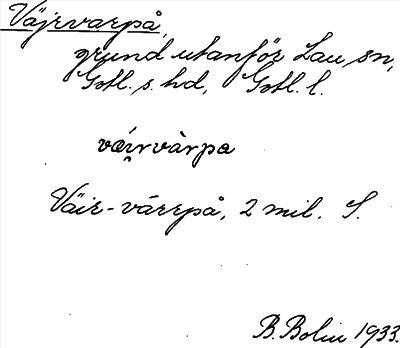 Väjrvarpå,
grund utanför Lau sn,
Gotl. s. hd, Gotl. l.
vä́i̯rvàrpa
Väir-várrpå, 2 mil. S.
B. Bolin 1933.